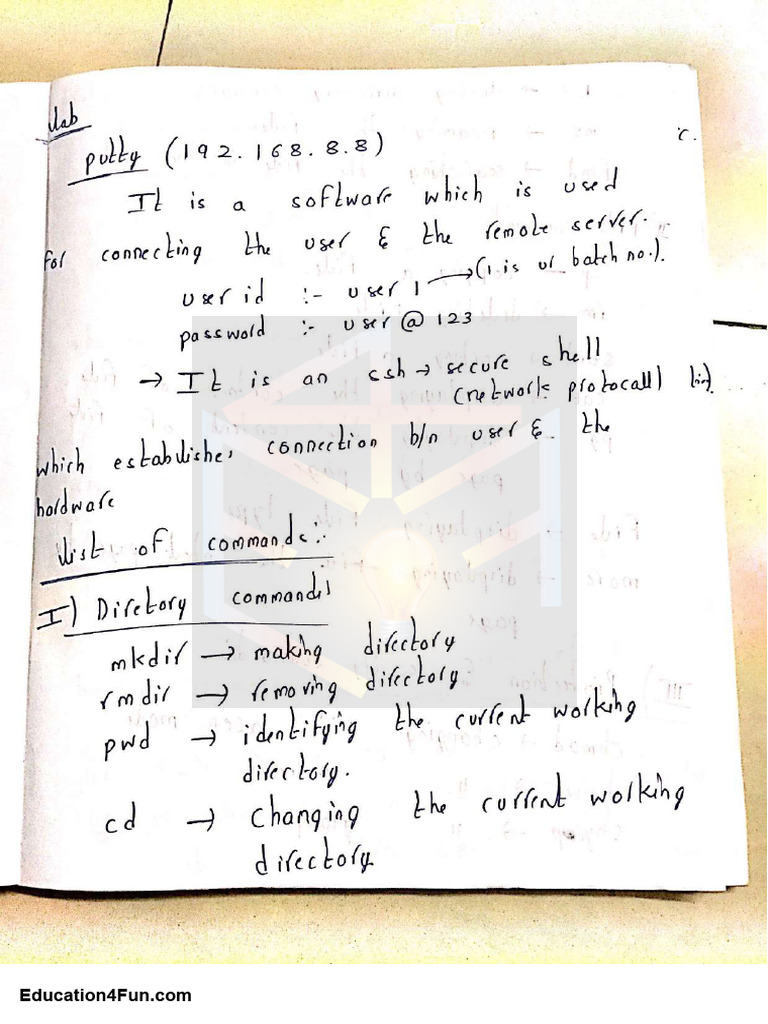 Lab
putty (192.168.8.8)
It is a software which is used
for connecting the user & the remote server.
user id :- user 1 → (1 is ur batch no.).
password :- user@123
→ It is an ssh → secure shell
(network protocall)
which establishes connection b/n user & the
hardware
List of commands:-
I) Diretory commands
mkdir → making directory
rmdir → removing directory
pwd → identifying the current working
directory.
cd → changing the current working
directory.
Education4Fun.com